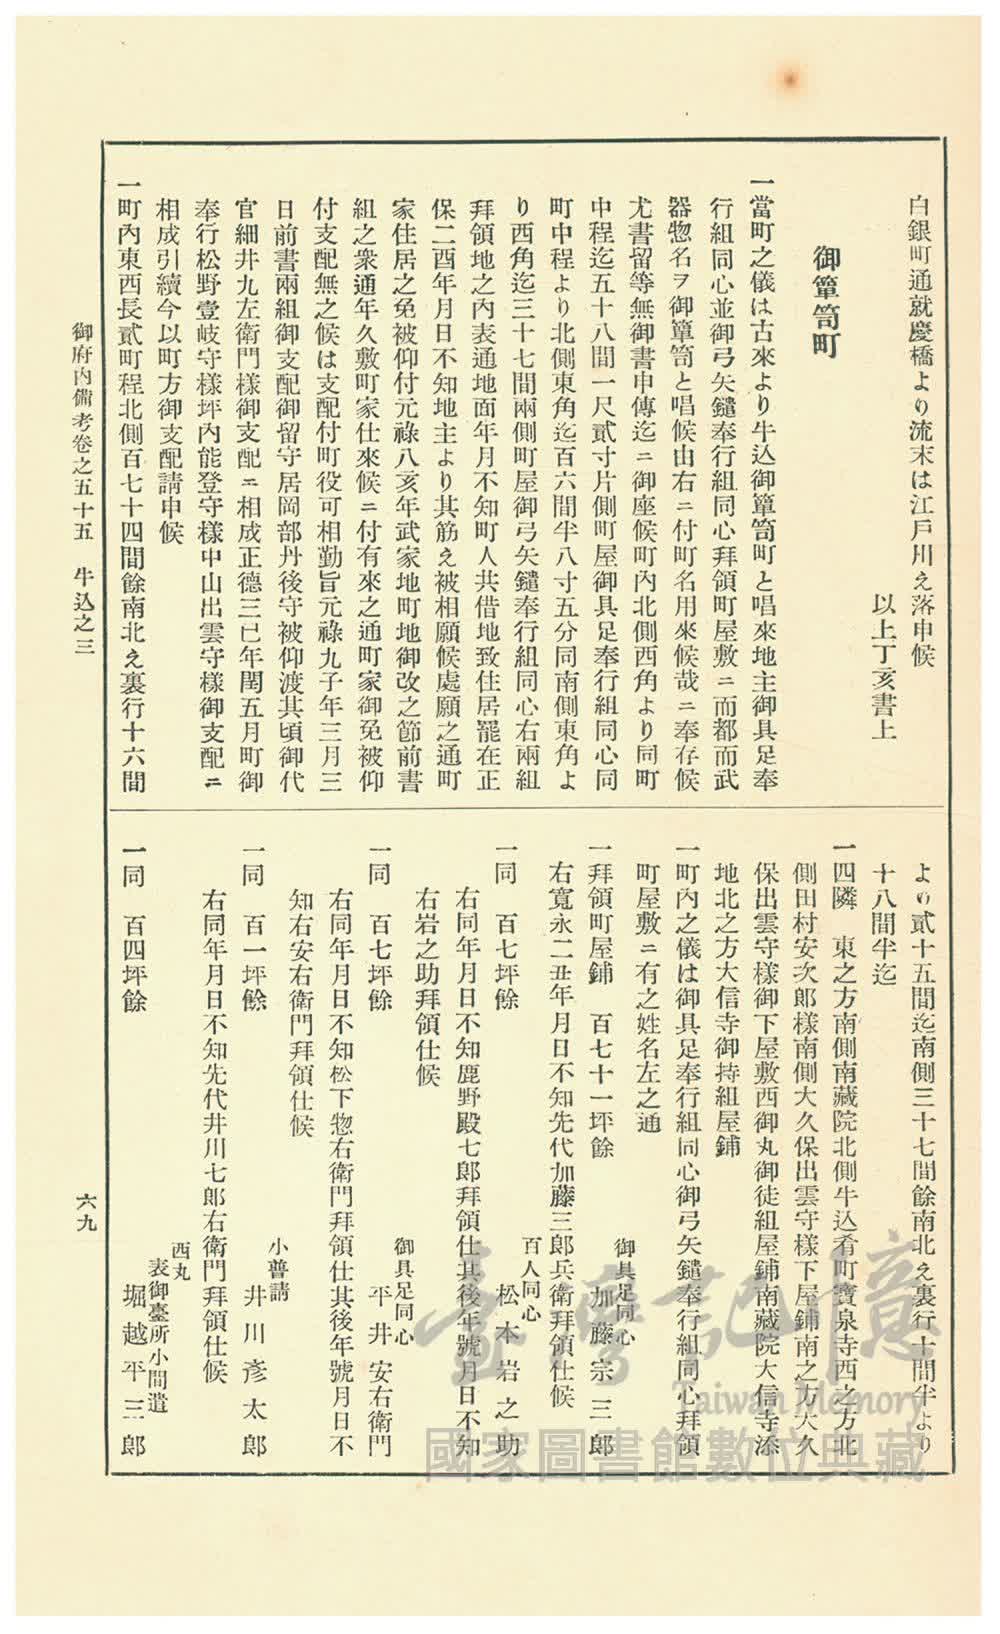 白銀町通就慶橋より流末は江戶川え落申候
以上丁亥書上
御簞笥町
一當町之儀は古來より牛込御簞笥町と唱來地主御具足奉
行組同心並御弓矢鑓奉行組同心拜領町屋敷ニ而都而武
器惣名ヲ御簞笥と唱候由右ニ付町名用來候哉ニ奉存候
尤書留等無御書申傳迄ニ御座候町內北側西角より同町
中程迄五十八間一尺貳寸片側町屋御具足奉行組同心同
町中程より北側東角迄百六間半八寸五分同南側東角よ
り西角迄三十七間兩側町屋御弓矢鑓奉行組同心右兩組
拜領地之內表通地面年月不知町人共借地致住居罷在正
保二酉年月日不知地主より其筋え被相願候處願之通町
家住居之免被仰付元祿八亥年武家地町地御改之節前書
組之衆通年久敷町家仕來候ニ付有來之通町家御免被仰
付支配無之候は支配付町役可相勤旨元祿九子年三月三
日前書兩組御支配御留守居岡部丹後守被仰渡其頃御代
官細井九左衛門樣御支配ニ相成正德三巳年閏五月町御
奉行松野壹岐守樣坪內能登守樣中山出雲守樣御支配ニ
相成引續今以町方御支配請申候
一町內東西長貳町程北側百七十四間餘南北え裏行十六間
より貳十五間迄南側三十七間餘南北え裏行十間半より
十八間半迄
一四隣　東之方南側南藏院北側牛込肴町寶泉寺西之方北
側田村安次郞樣南側大久保出雲守樣下屋鋪南之方大久
保出雲守樣御下屋敷西御丸御徒組屋鋪南藏院大信寺添
地北之方大信寺御持組屋鋪
一町內之儀は御具足奉行組同心御弓矢鑓奉行組同心拜領
町屋敷ニ有之姓名左之通
一拜領町屋鋪　百七十一坪餘　御具足同心　加藤宗三郞
右寬永二丑年月日不知先代加藤三郞兵衛拜領仕候
一同　百七坪餘　百人同心　松本岩之助
右同年月日不知鹿野殿七郞拜領仕其後年號月日不知
右岩之助拜領仕候
一同　百七坪餘　御具足同心　平井安右衛門
右同年月日不知松下惣右衛門拜領仕其後年號月日不
知右安右衛門拜領仕候
一同　百一坪餘　小普請　井川彥太郞
右同年月日不知先代井川七郞右衛門拜領仕候
一同　百四坪餘　西丸表御臺所小間遣　堀越平三郞
御府內備考卷之五十五　牛込之三
六九
臺灣記憶
Taiwan Memory
國家圖書館數位典藏